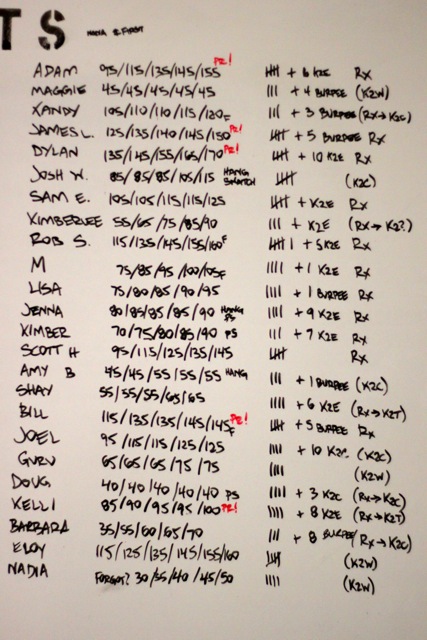 TS
ADAM 95/115/135/145/155 PR! 𝍸 + 6 K2E Rx
MAGGIE 45/45/45/45/45 III + 4 BURPEE (K2W)
XANDY 105/110/110/115/120F III + 3 BURPEE (Rx→K2C)
JAMES L. 125/135/140/145/150 PR! 𝍸 + 5 BURPEE Rx
DYLAN 135/145/155/165/170 PR! 𝍸 + 10 K2E Rx
JOSH W. 85/85/85/105/115 HANG SNATCH 𝍸 (K2C)
SAM E. 105/105/115/115/125 𝍸 + K2E Rx
KIMBERLEE 55/65/75/85/90 III + K2E (Rx→K2?)
ROB S. 115/125/145/155/160F 𝍸 I + 5 K2E Rx
M 75/85/95/100/105F IIII + 1 K2E Rx
LISA 75/80/85/90/95 IIII + 1 BURPEE Rx
JENNA 80/85/85/85/90 HANG PS IIII + 9 K2E Rx
KIMBER 70/75/80/85/90 PS IIII + 7 K2E Rx
SCOTT H 95/115/125/135/145 𝍸 Rx
AMY B 45/45/55/55/55 HANG III + 1 BURPEE (K2C)
SHAY 55/55/55/65/65 IIII + 6 K2E (Rx→K2T)
BILL 115/135/135/145/145F PR! 𝍸 + 5 BURPEE Rx
JOEL 95/115/115/125/125 IIII + 10 K2C (K2C)
GURU 65/65/65/75/75 IIII (K2W)
DOUG 40/40/40/40/40 PS IIII + 3 K2C (Rx→K2C)
KELLI 85/90/95/95/100 PR! IIII + 8 K2E (Rx→K2T)
BARBARA 35/55/60/65/70 III + 8 BURPEE (Rx→K2C)
ELOY 115/125/135/145/155/160 𝍸 (K2W)
NADIA FORGOT? 30/35/40/45/50 IIII (K2W)